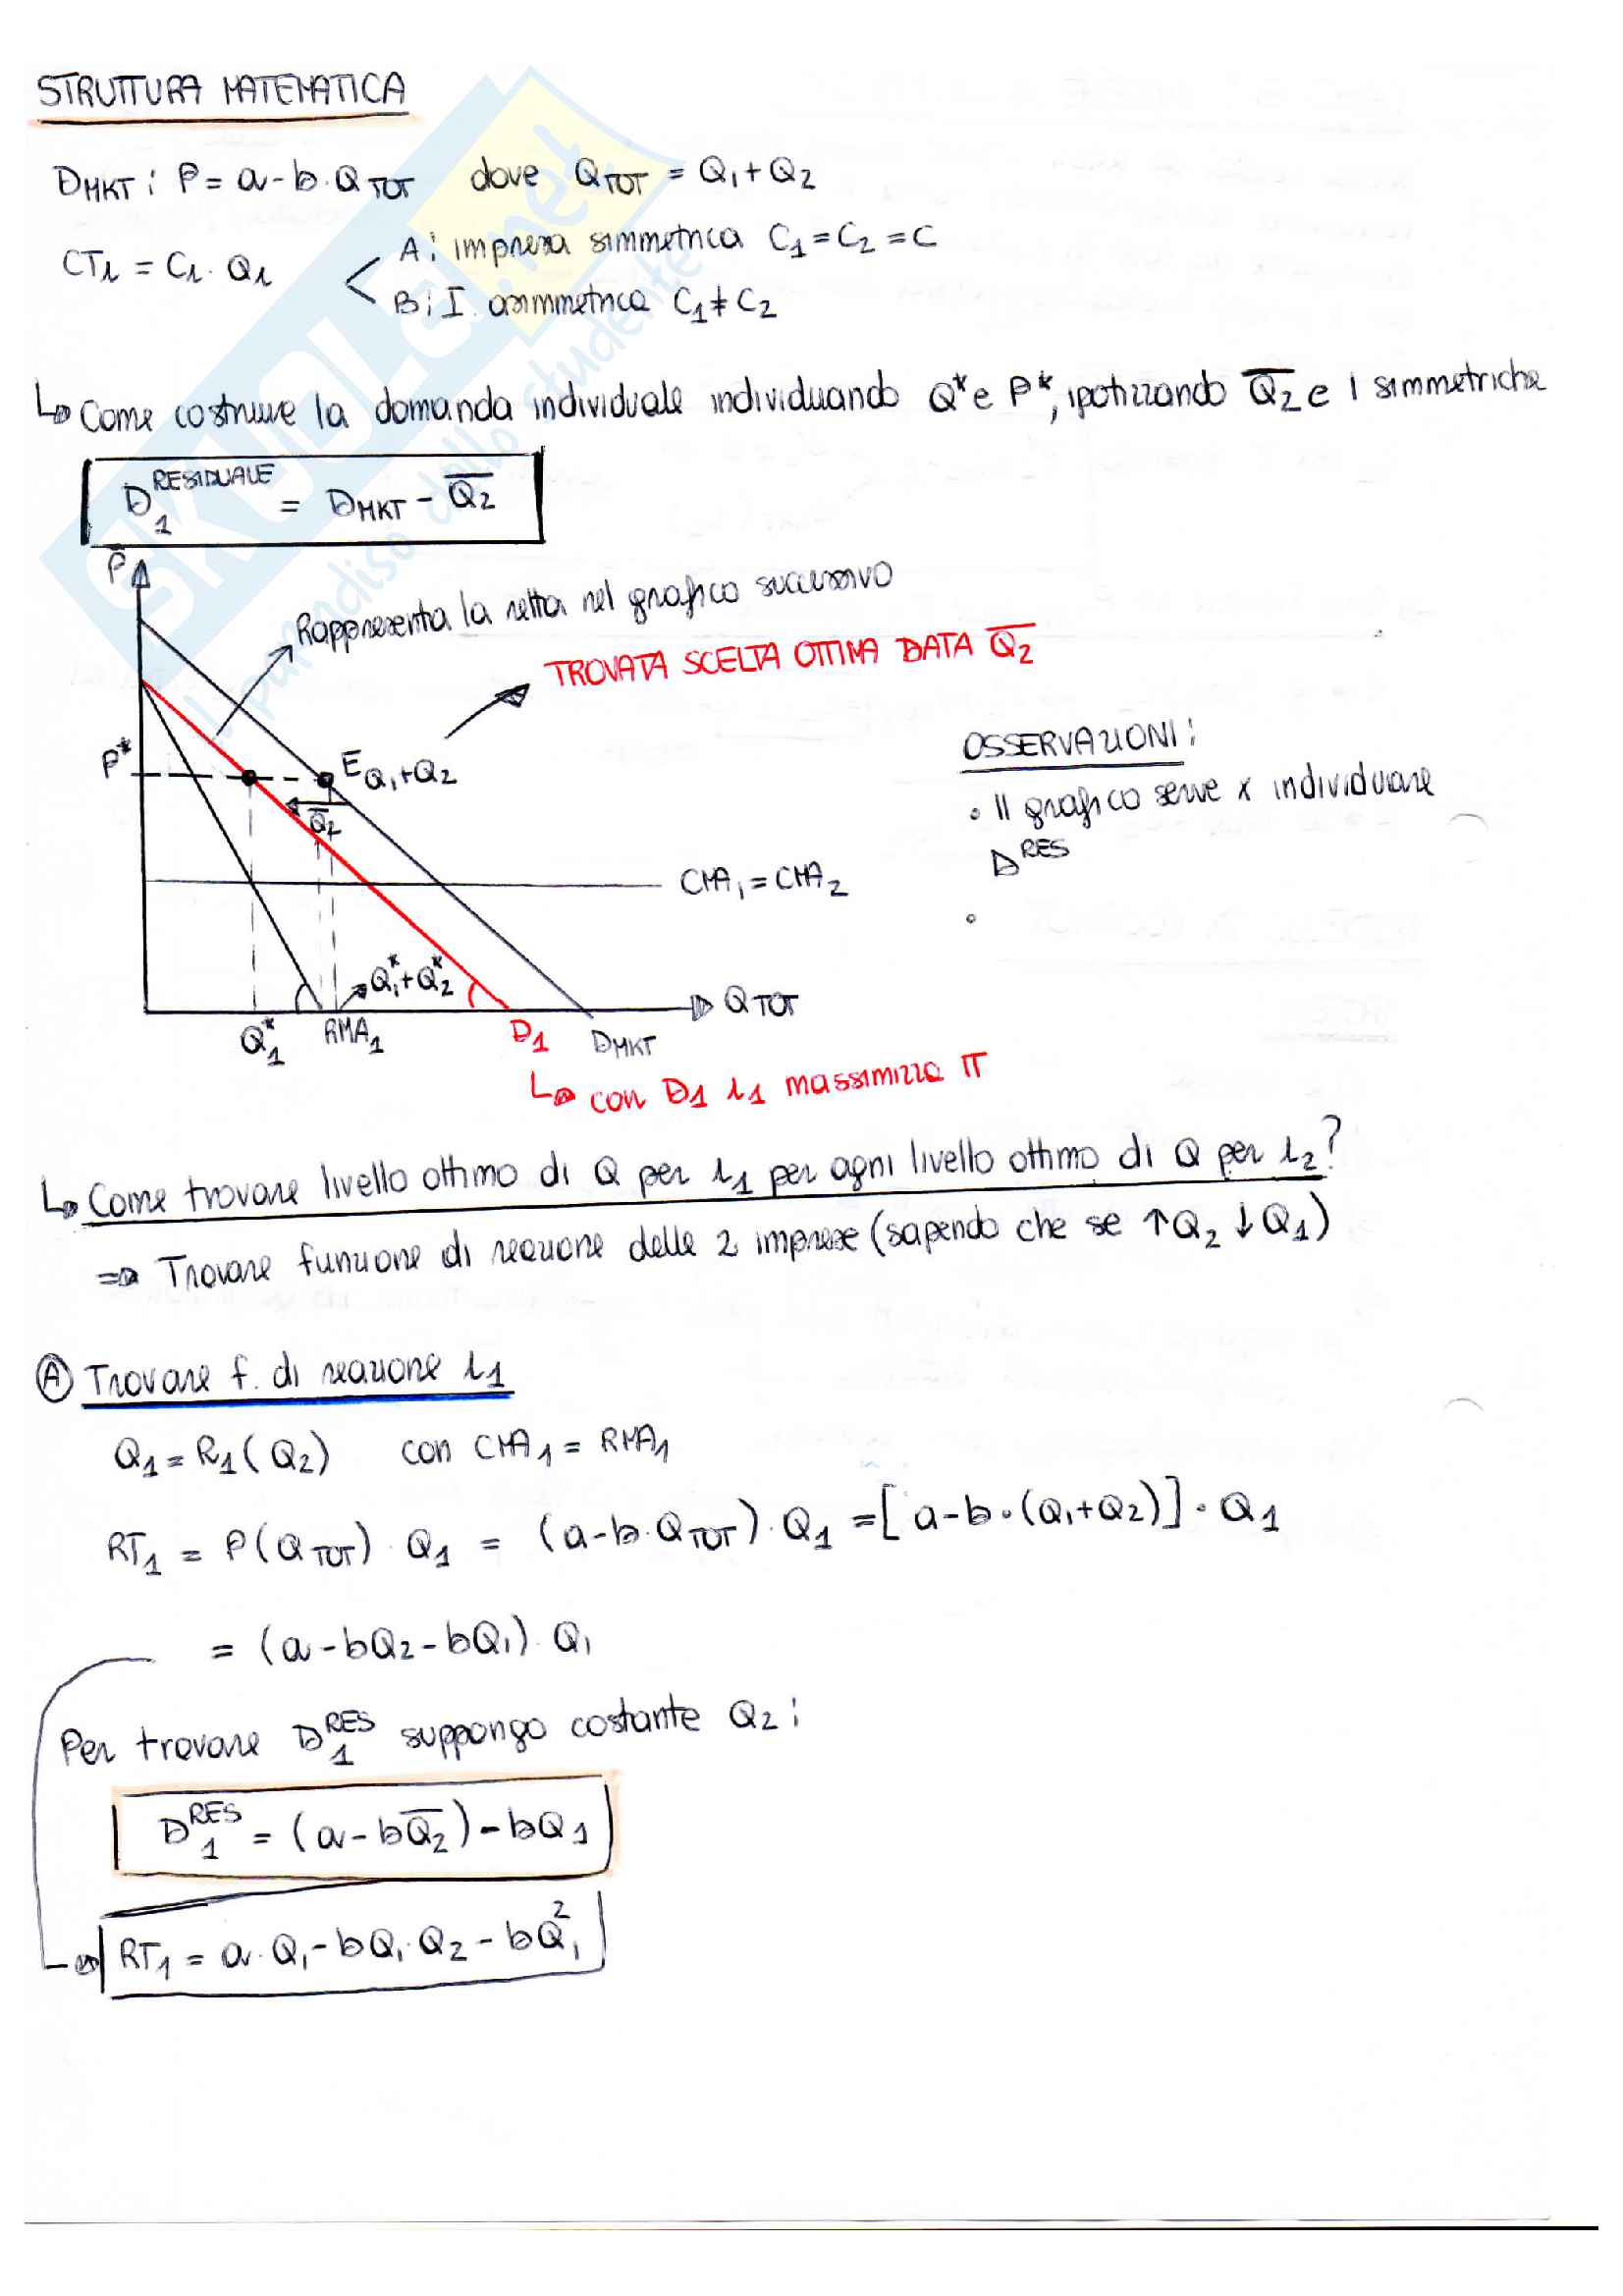 STRUTTURA MATEMATICA
DMKT: P = a - b · QTOT dove QTOT = Q1 + Q2
CTi = Ci · Qi
A: impresa simmetrica C1 = C2 = C
B: I. asimmetrica C1 ≠ C2
↳ Come costruire la domanda individuale individuando Q* e P*, ipotizzando Q̅2 e I simmetriche
D1^RESIDUALE = DMKT - Q̅2
P
Rappresenta la retta nel grafico successivo
TROVATA SCELTA OTTIMA DATA Q̅2
P*
E Q1+Q2
Q̅2
OSSERVAZIONI:
• Il grafico serve x individuare
D^RES
•
CMA1 = CMA2
Q1* + Q2*
QTOT
Q1*
RMA1
D1
DMKT
↳ con D1 i1 massimizza π
↳ Come trovare livello ottimo di Q per i1 per ogni livello ottimo di Q per i2?
⇒ Trovare funzione di reazione delle 2 imprese (sapendo che se ↑Q2 ↓Q1)
Ⓐ Trovare f. di reazione i1
Q1 = R1(Q2) con CMA1 = RMA1
RT1 = P(QTOT) · Q1 = (a - b · QTOT) · Q1 = [a - b · (Q1 + Q2)] · Q1
= (a - bQ2 - bQ1) · Q1
Per trovare D1^RES suppongo costante Q2:
D1^RES = (a - bQ̅2) - bQ1
RT1 = a · Q1 - bQ1 · Q2 - bQ1²
SKUOLA.net
il paradiso dello studente